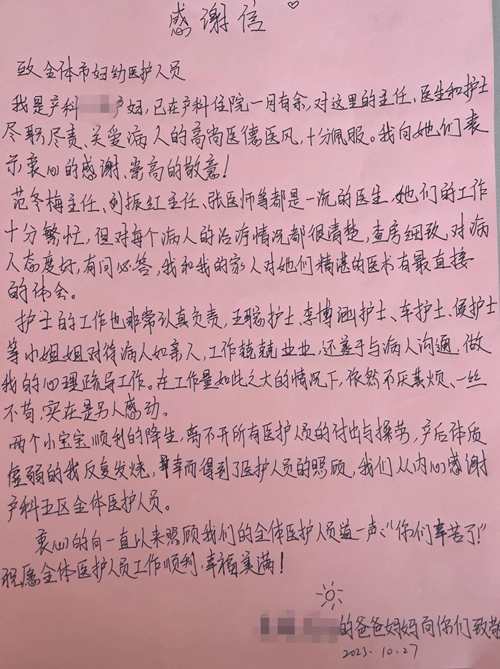 感谢信
致全体市妇幼医护人员
我是产科 产妇,已在产科住院一月有余,对这里的主任、医生和护士
尽职尽责、关爱病人的高尚医德医风,十分佩服。我向她们表
示衷心的感谢,崇高的敬意!
范冬梅主任、刘振红主任、张医师等都是一流的医生,她们的工作
十分繁忙,但对每个病人的治疗情况都很清楚,查房细致,对病
人态度好,有问必答,我和我的家人对她们精湛的医术有最直接
的体会。
护士的工作也非常认真负责,王聪护士、李博涵护士、车护士、侯护士
等小姐姐对待病人如亲人,工作兢兢业业,还善于与病人沟通,做
我的心理疏导工作。在工作量如此之大的情况下,依然不厌其烦、一丝
不苟,实在是另人感动。
两个小宝宝顺利的降生,离不开所有医护人员的付出与操劳,产后体质
虚弱的我反复发烧,幸而得到了医护人员的照顾,我们从内心感谢
产科五区全体医护人员。
衷心的向一直以来照顾我们的全体医护人员道一声:“你们辛苦了!”
祝愿全体医护人员工作顺利,幸福美满!
的爸爸妈妈向你们致敬
2023.10.27